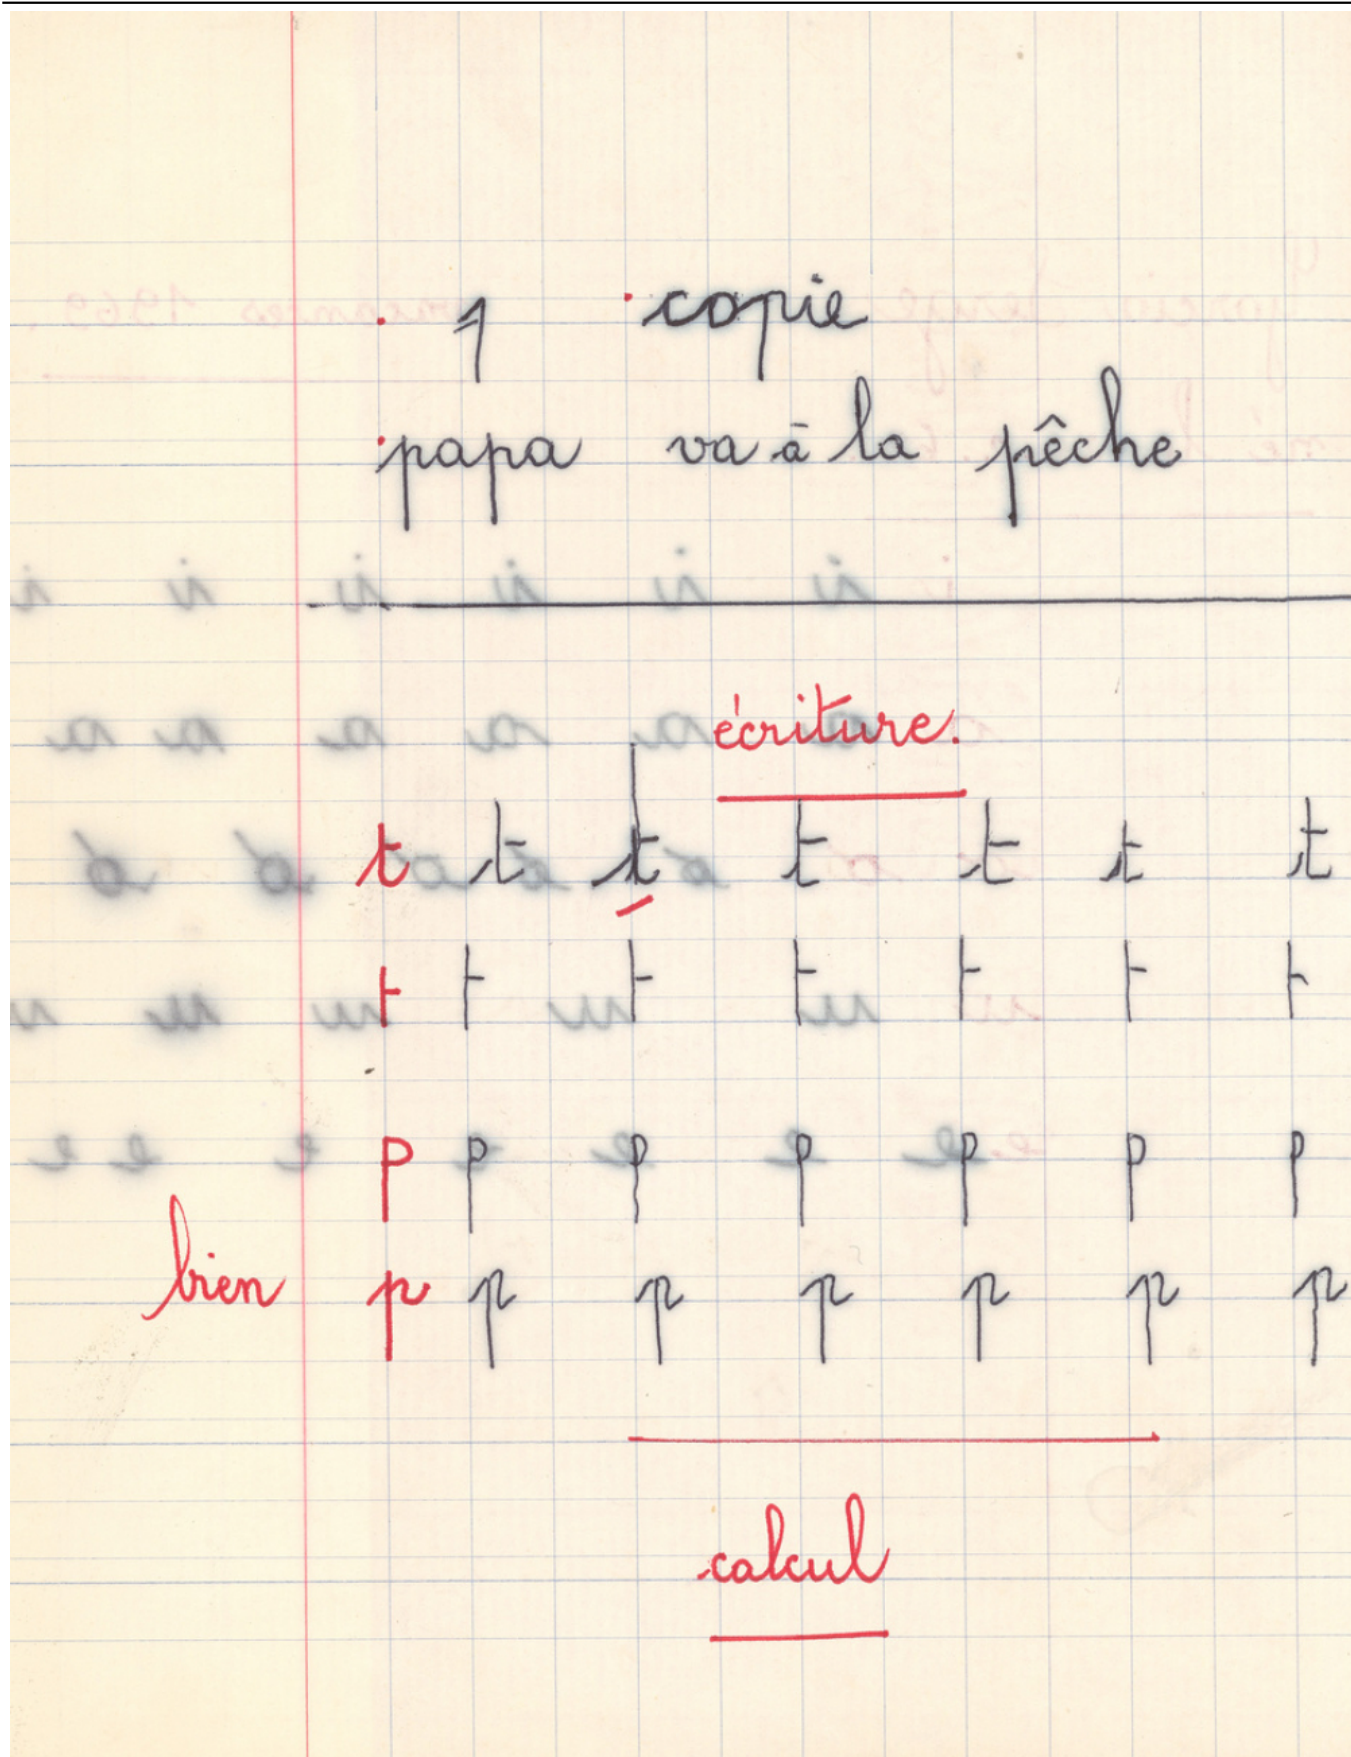 1 copie
papa va à la pêche
écriture.
t t t t t t t
t t t t t t t
p p p p p p p
bien p p p p p p p
calcul